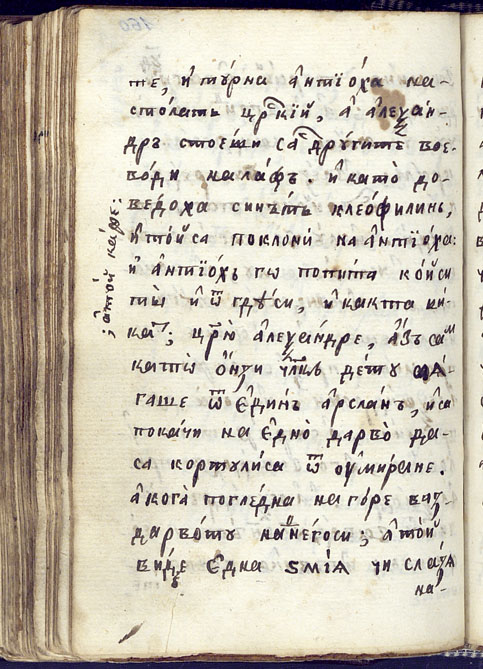 те, и҆ тꙋ́рна а҆нтїо́ха на-
сто́латъ црⷭ҇кїй, а҆ а҆леѯа́н-
дръ стое́ши са дрꙋ́гитѣ вое-
во́ди на ла́фъ. и҆ като̀ до-
ведо́ха синътъ клео́филинь,
и҆ то́й са поклони̑ на а҆нтїо́ха:
и҆ а҆нтїо́хъ го попи́та ко́й си
ты̀ и҆ ѿ гдѣ́ си, и҆ ка́к та ви́-
катъ; цр҃ю а҆леѯа́ндре, а҆́зъ самъ
като̀ ѻ҆́нѹи чл҃къ де́тѹ бѧ́-
гаше ѿ є҆ди́нъ арсла́нъ, и҆ са
покачи на є҆дно̀ дарво̀ да-
са кортули́са ѿ ѹ҆мира́не.
а҆ кога̀ погле́дна на го́ре в
дарво́тѹ на него́ си; а҆ то́й
ви́де є҆дна ѕмїѧ̀ чи сла́зѧ
на-
; а҆ то́й ка́же:
160